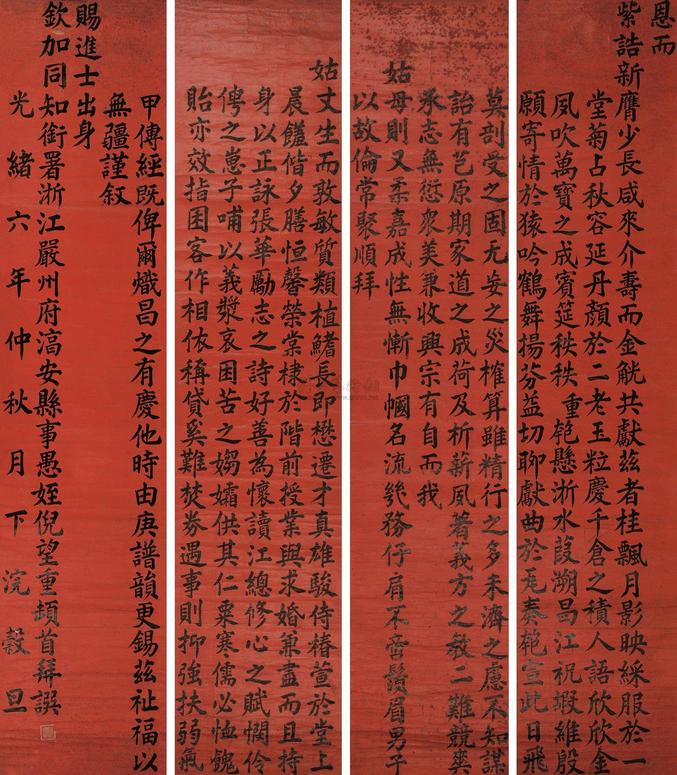 恩而
紫誥新膺少長咸來介壽而金觥共獻茲者桂飄月影映綵服於一
堂菊占秋容延丹顏於二老玉粒慶千倉之積人語欣欣金
風吹萬寶之成賓筵秩秩重乾懸浙水葭溯昌江祝嘏維殷
願寄情於猿吟鶴舞揚芬益切聊獻曲於奏乾宣此日飛
莫剖受之固无妄之災榷算雖精行之多未濟之慮不知謀
詒有芑原期家道之成荷及析薪夙著義方之教二難競爽
承志無愆眾美兼收興宗有自而我
姑母則又柔嘉成性無慚巾幗名流務仔肩不啻鬚眉男子
以故倫常聚順拜
姑丈生而敦敏質類植鰭長即懋遷才真雄駿侍椿萱於堂上
晨饈偕夕膳恒馨榮棠棣於階前授業與求婚兼盡而且持
身以正詠張華勵志之詩好善為懷讀江總修心之賦憫伶
俜之崽子哺以義漿哀困苦之孀供其仁粟寒儒必恤餽
貽亦效指囷客作相依稱貸奚難焚券遇事則抑強扶弱氣
甲傳經既俾爾熾昌之有慶他時由庚譜韻更錫茲祉福以
無疆謹敘
賜進士出身
欽加同知銜署浙江嚴州府淳安縣事愚姪倪望重頓首拜譔
光緒六年仲秋月下浣穀旦